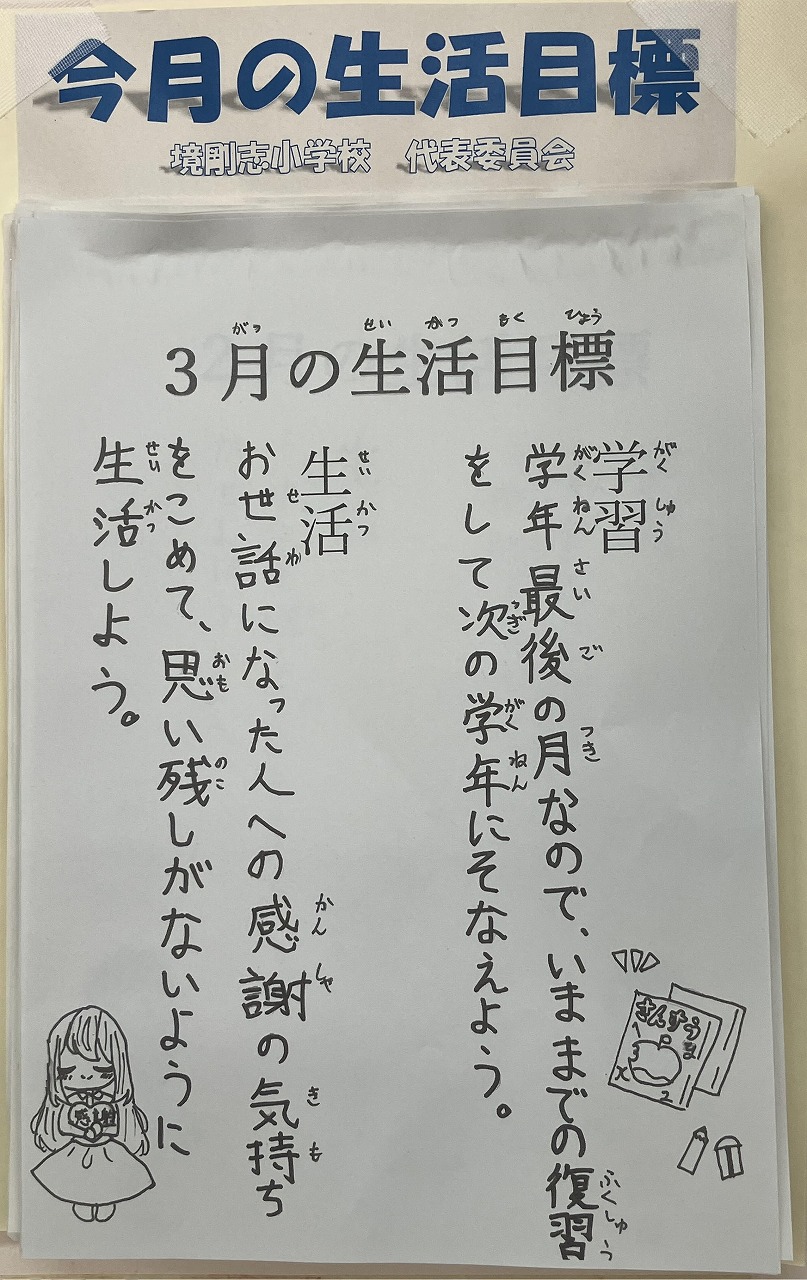 今月の生活目標
境剛志小学校 代表委員会
3月の生活目標
学習
学年最後の月なので、いままでの復習
をして次の学年にそなえよう。
生活
お世話になった人への感謝の気持ち
をこめて、思い残しがないように
生活しよう。
さんすう
1
3
x
2
感謝